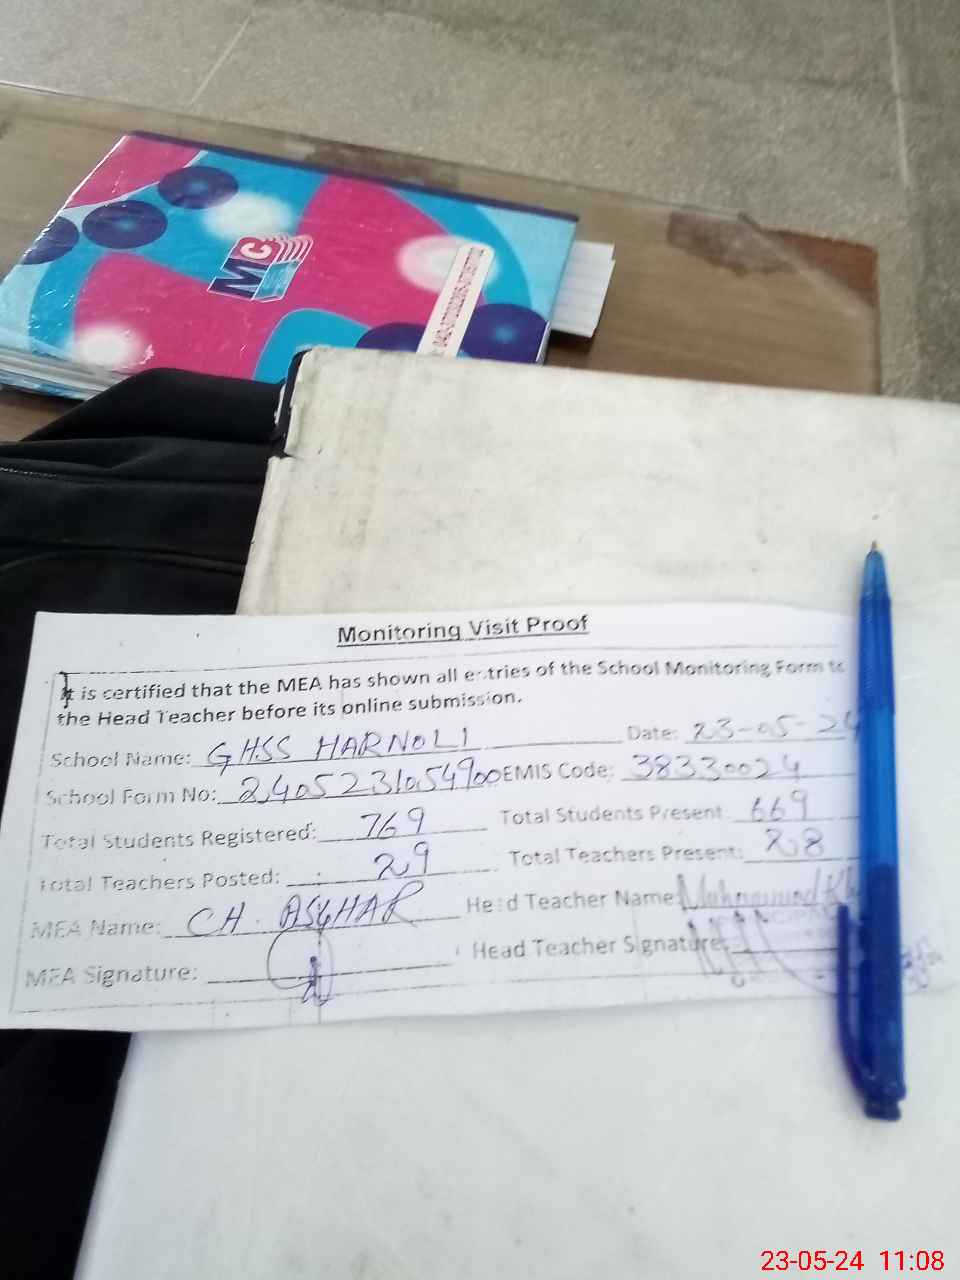 MC
Monitoring Visit Proof
It is certified that the MEA has shown all entries of the School Monitoring Form to
the Head Teacher before its online submission.
School Name: GHSS HARNOLI Date: 23-05-24
School Form No: 2405231054900 EMIS Code: 38330024
Total Students Registered: 769 Total Students Present: 669
Total Teachers Posted: 29 Total Teachers Present: 28
MEA Name: CH. ASGHAR Head Teacher Name: Muhammad
MEA Signature: Head Teacher Signature:
23-05-24 11:08